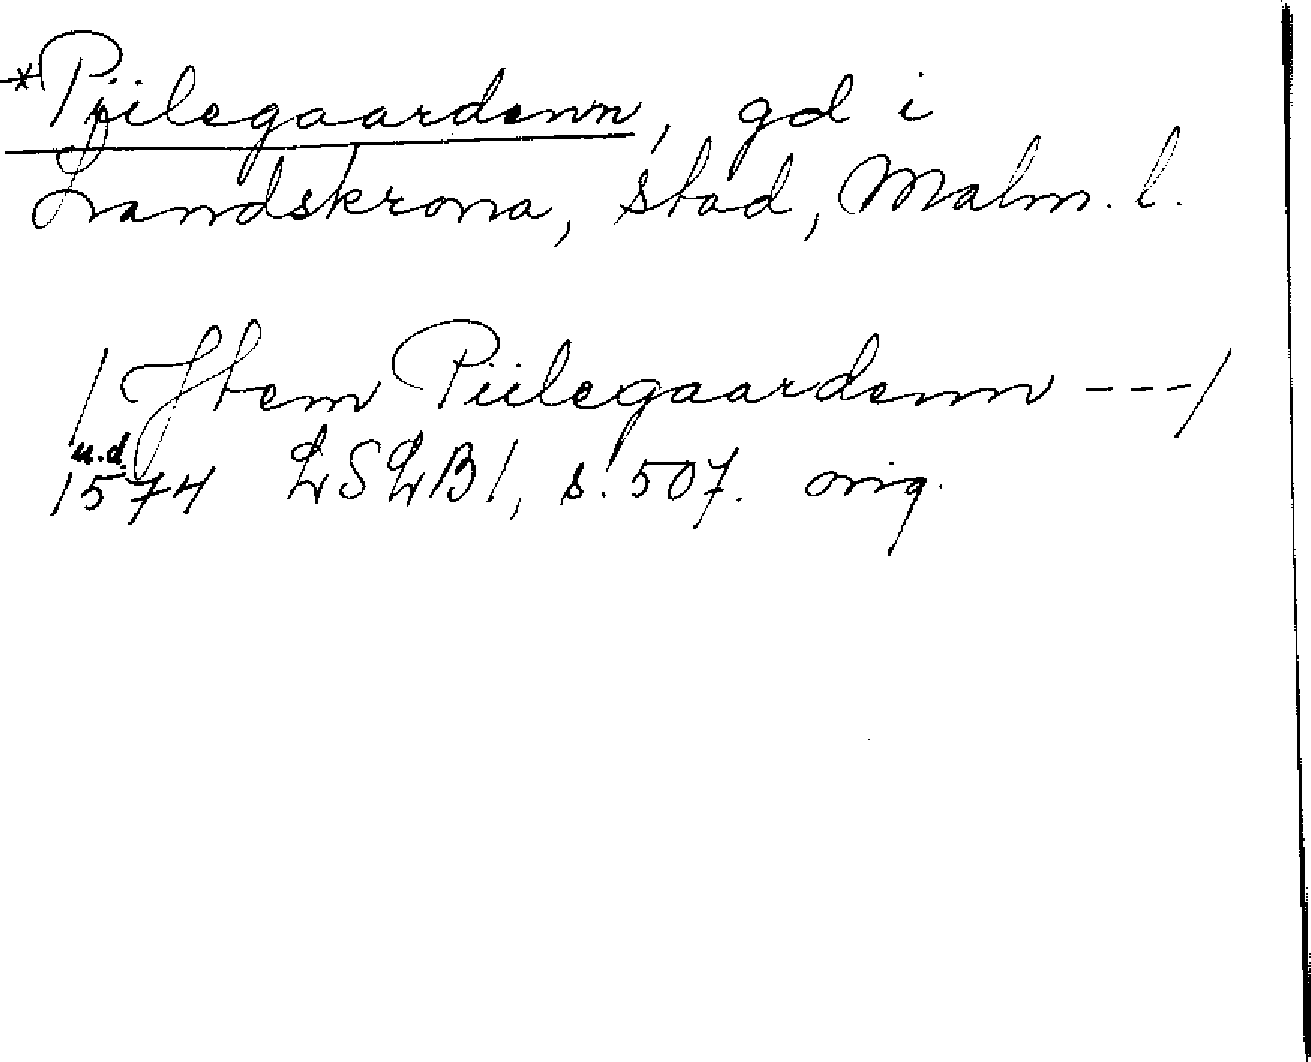 *Piilegaardenn, gd i
Landskrona, stad, Malm. l.
/Jtem Piilegaardenn ---/
u.d.
1574 LSLB1, s. 507. orig.